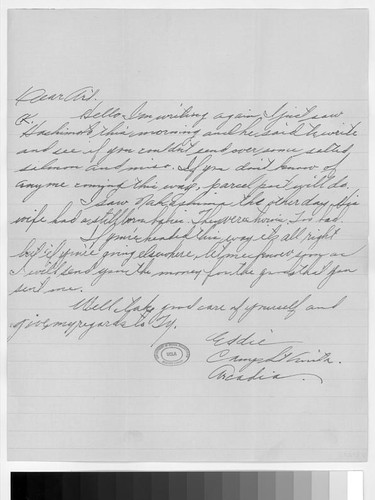 Dear Art.
Hello. I'm writing again, I just saw
K. Hashimoto this morning and he said to write
and see if you couldn't send over some salted
salmon and miso. If you don't know of
anyone coming this way, parcel post will do.
I saw Nakashima the other day. His
wife had a still born
If you're headed this way it's all right
but if you're going elsewhere, let me know soon as
I will send you the money for the goods that you
sent me.
Well, take good care of yourself and
give my regards to Ty.
Eddie
Camp St Anita.
Arcadia.
UCLA